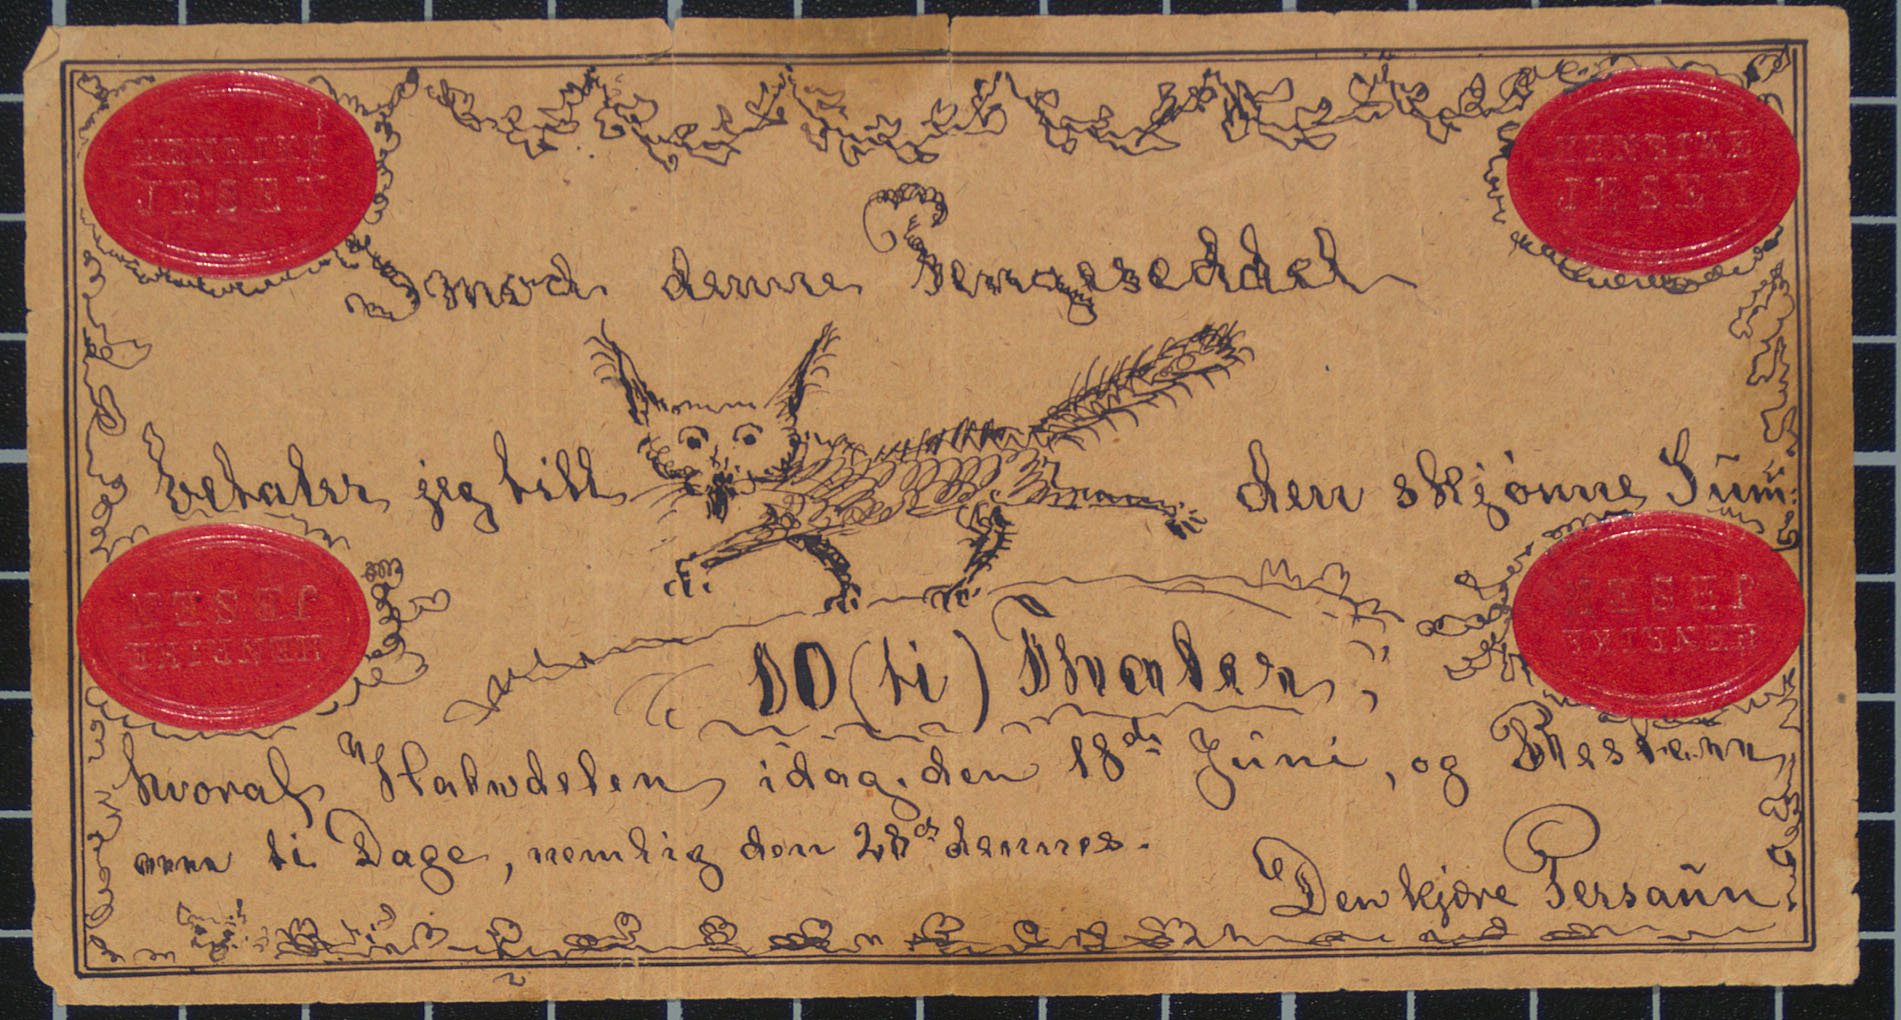 HENRIKE
JESEN
HENRIKE
JESEN
mod denne Pengeseddel
betaler jeg till
den skjønne Sum:
JESEN
HENRIKE
JESEN
HENRIKE
10 (ti) Thaler
hvoraf Halvdelen idag den 18de Juni, og Resten
om ti Dage, nemlig den 28de dennes.
Den kjære Persaun